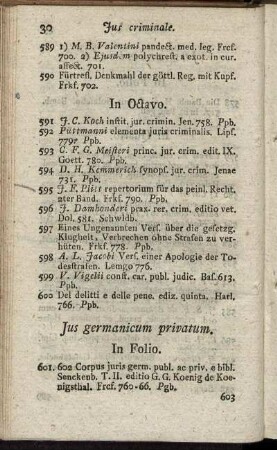 30 Jus criminale.
589 1) M. B. Valentini pandect. med. leg. Frcf.
700. 2) Ejusdem polychrest. a exot. in cur.
affect. 701.
590 Fürtrefl. Denkmahl der göttl. Reg. mit Kupf.
Frkf. 702.
In Octavo.
591 J. C. Koch instit. jur. crimin. Jen. 758. Ppb.
592 Püttmanni elementa juris criminalis. Lips.
779. Ppb.
593 C. F. G. Meisteri princ. jur. crim. edit. IX.
Goett. 780. Ppb.
594 D. H. Kemmerich synops. jur. crim. Jenae
731. Ppb.
595 J. F. Plitt repertorium für das peinl. Recht.
2ter Band. Frkf. 790. Ppb.
596 J. Damhouderi prax. rer. crim. editio vet.
Dol. 581. Schwslb.
597 Eines Ungenannten Vers. über die gesetzg.
Klugheit, Verbrechen ohne Strafen zu ver-
hüten. Frkf. 778. Ppb.
598 A. L. Jacobi Vers. einer Apologie der To-
desstrafen. Lemgo 776.
599 V. Vigelii const. car. publ. judic. Bas. 613.
Ppb.
600 Del delitti e delle pene. ediz. quinta. Harl.
766. Ppb.
Jus germanicum privatum.
In Folio.
601. 602 Corpus juris germ. publ. ac priv. e bibl.
Senckenb. T. II. editio G. G. Koenig de Koe-
nigsthal. Frcf. 760-66. Pgb.
603